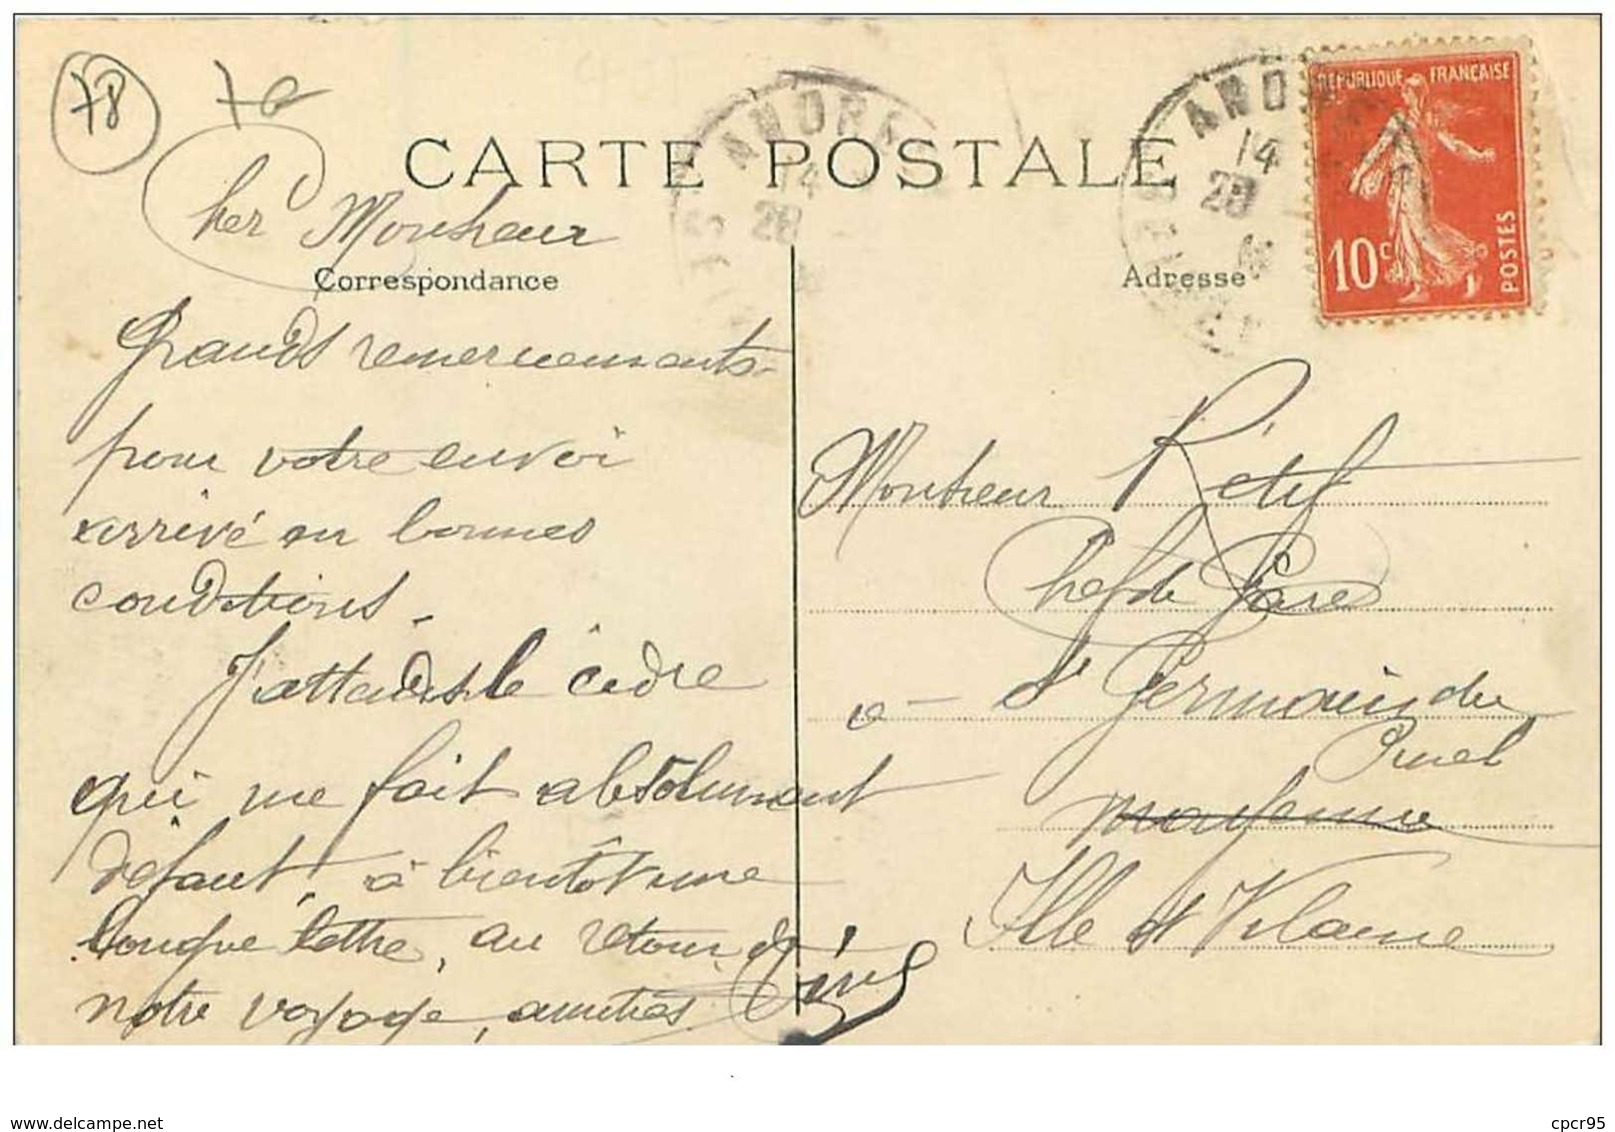 78
CARTE POSTALE
ANDR
14
28
ANDR
14
28
RÉPUBLIQUE FRANÇAISE
10c
POSTES
Cher Monsieur
Correspondance
Adresse
Grands remerciements
pour votre envoi
arrivé en bonnes
conditions.
J'attends le cidre
qui me fait absolument
défaut, à bientôt une
longue lettre, au retour de
notre voyage, amitiés
Monsieur Rétif
Chef de Gare
à St Germain du
Pinel
Mayenne
Ille et Vilaine
www.delcampe.net
cpcr95